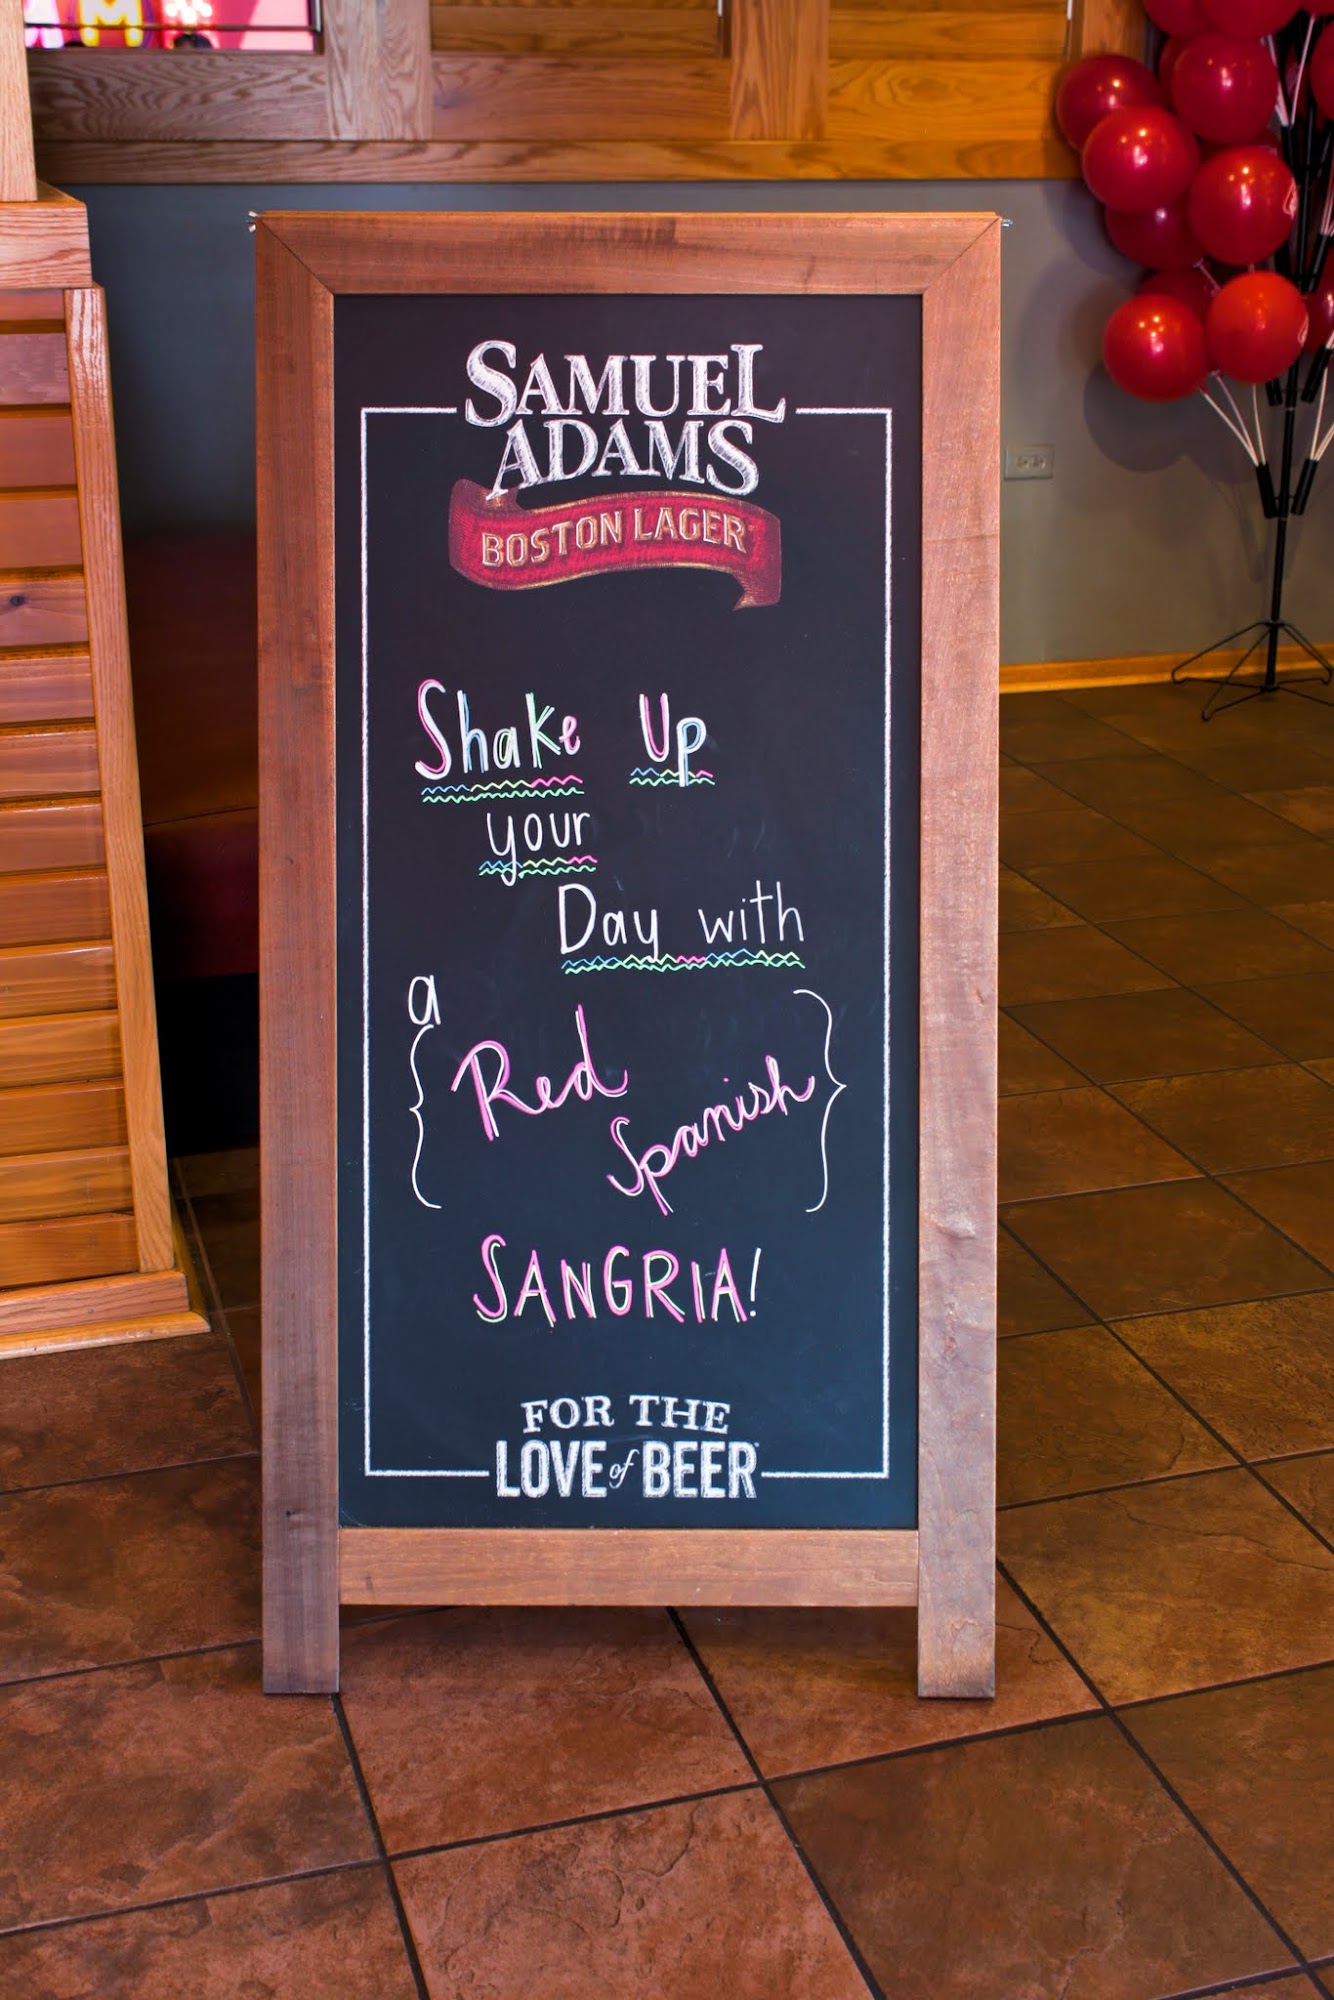 SAMUEL
ADAMS
BOSTON LAGER
Shake Up
your
Day with
a
{ Red
Spanish }
SANGRIA!
FOR THE
LOVE of BEER